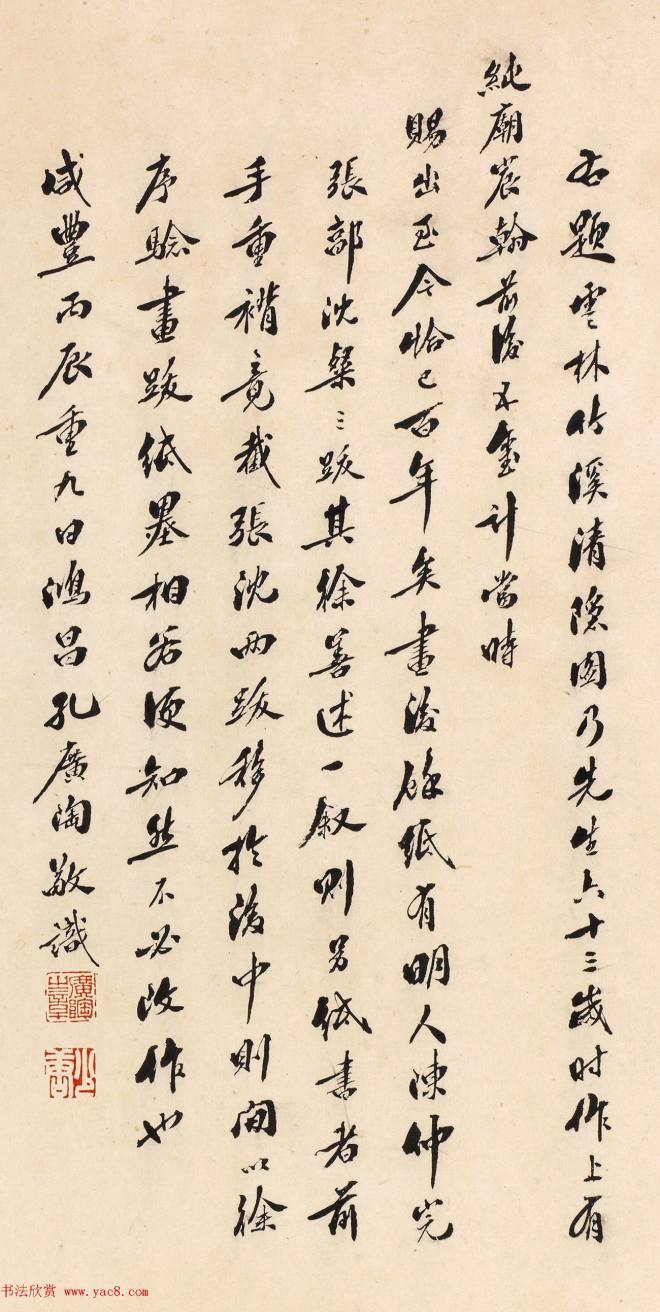 右題雲林竹溪清隱圖乃先生六十三歲时作上有
純廟宸翰前後五璽計當時
賜出至今恰已百年矣畫後餘紙有明人陳仲完
張部沈粲三跋其徐善述一敘則另紙書者前
手重褙竟截張沈兩跋移於後中則间以徐
序騐畫跋紙墨相符須知然不必改作也
咸豐丙辰重九日鴻昌孔廣陶敬識
廣陶 章
少唐
书法欣赏 www.yac8.com